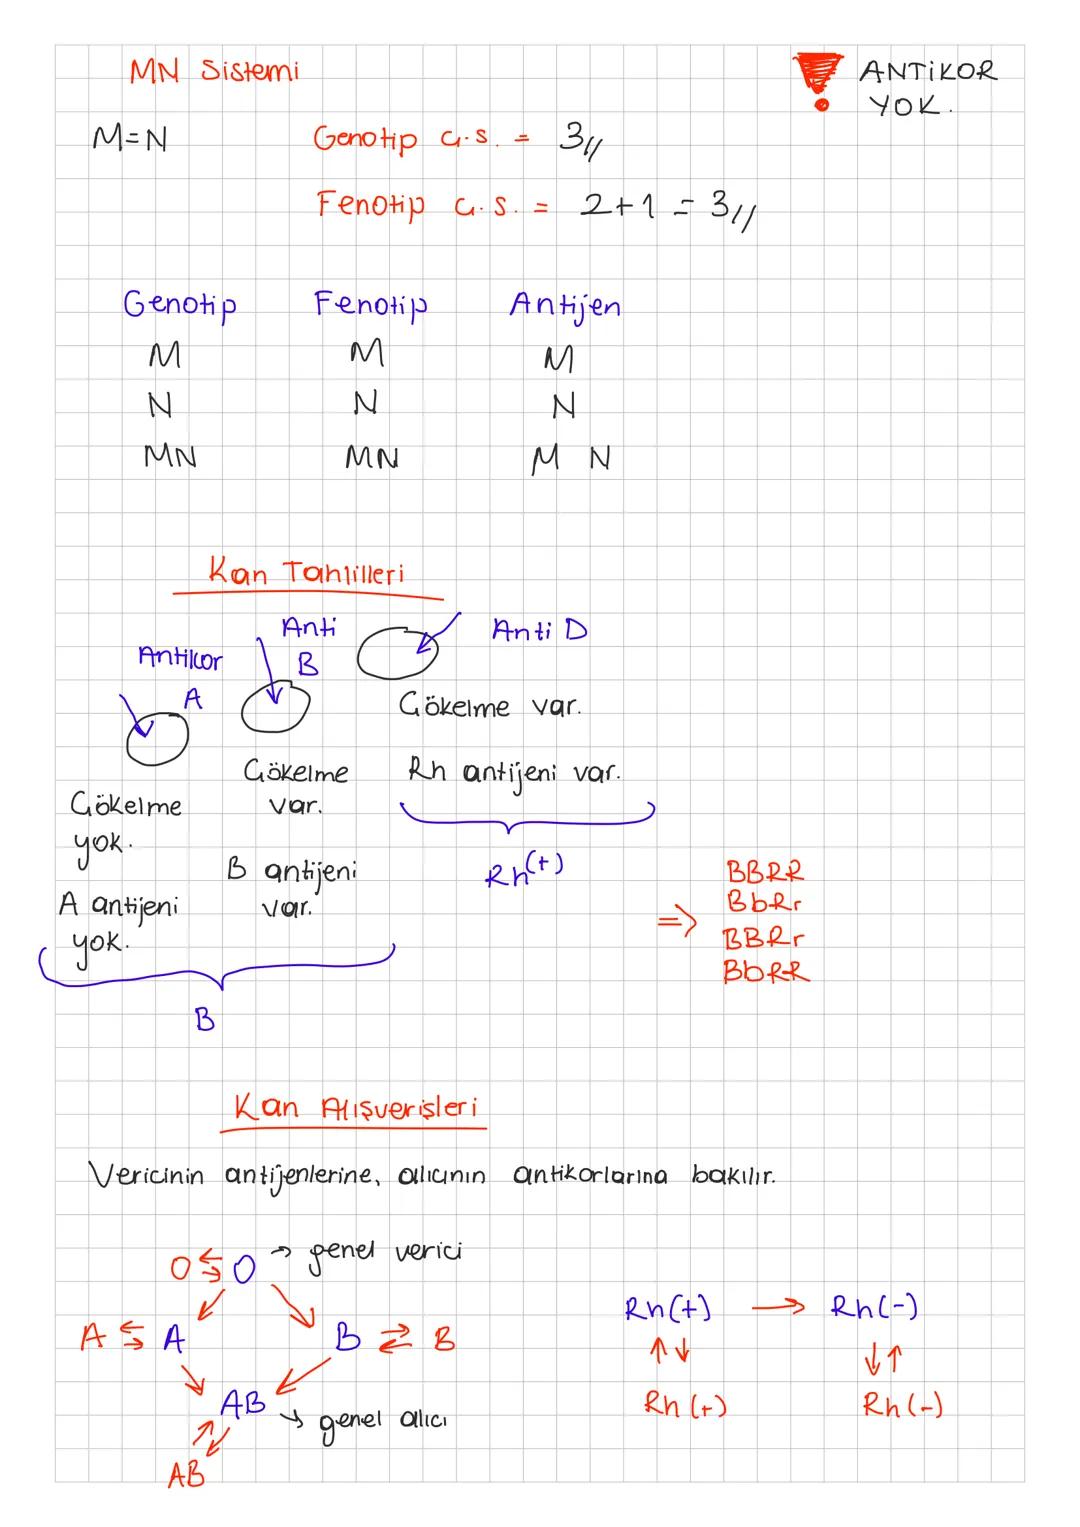 MN Sistemi
ANTİKOR
YOK.
M=N
Genotip Ç.S. = 3//
Fenotip Ç.S. = 2+1 = 3//
Genotip Fenotip Antijen
M M M
N N N
MN MN M N
Kan Tahlilleri
Antikor
A
Anti
B
Anti D
Çökelme
yok.
A antijeni
yok.
Çökelme
var.
B antijeni
var.
B
Çökelme var.
Rh antijeni var.
Rh(+)
=> BBRR
BbRr
BBRr
BbRR
Kan Alışverişleri
Vericinin antijenlerine, alıcının antikorlarına bakılır.
O ⇆ O → genel verici
A ⇆ A B ⇄ B
AB → genel alıcı
AB
Rh(+) → Rh(-)
↑↓ ↓↑
Rh(+) Rh(-)